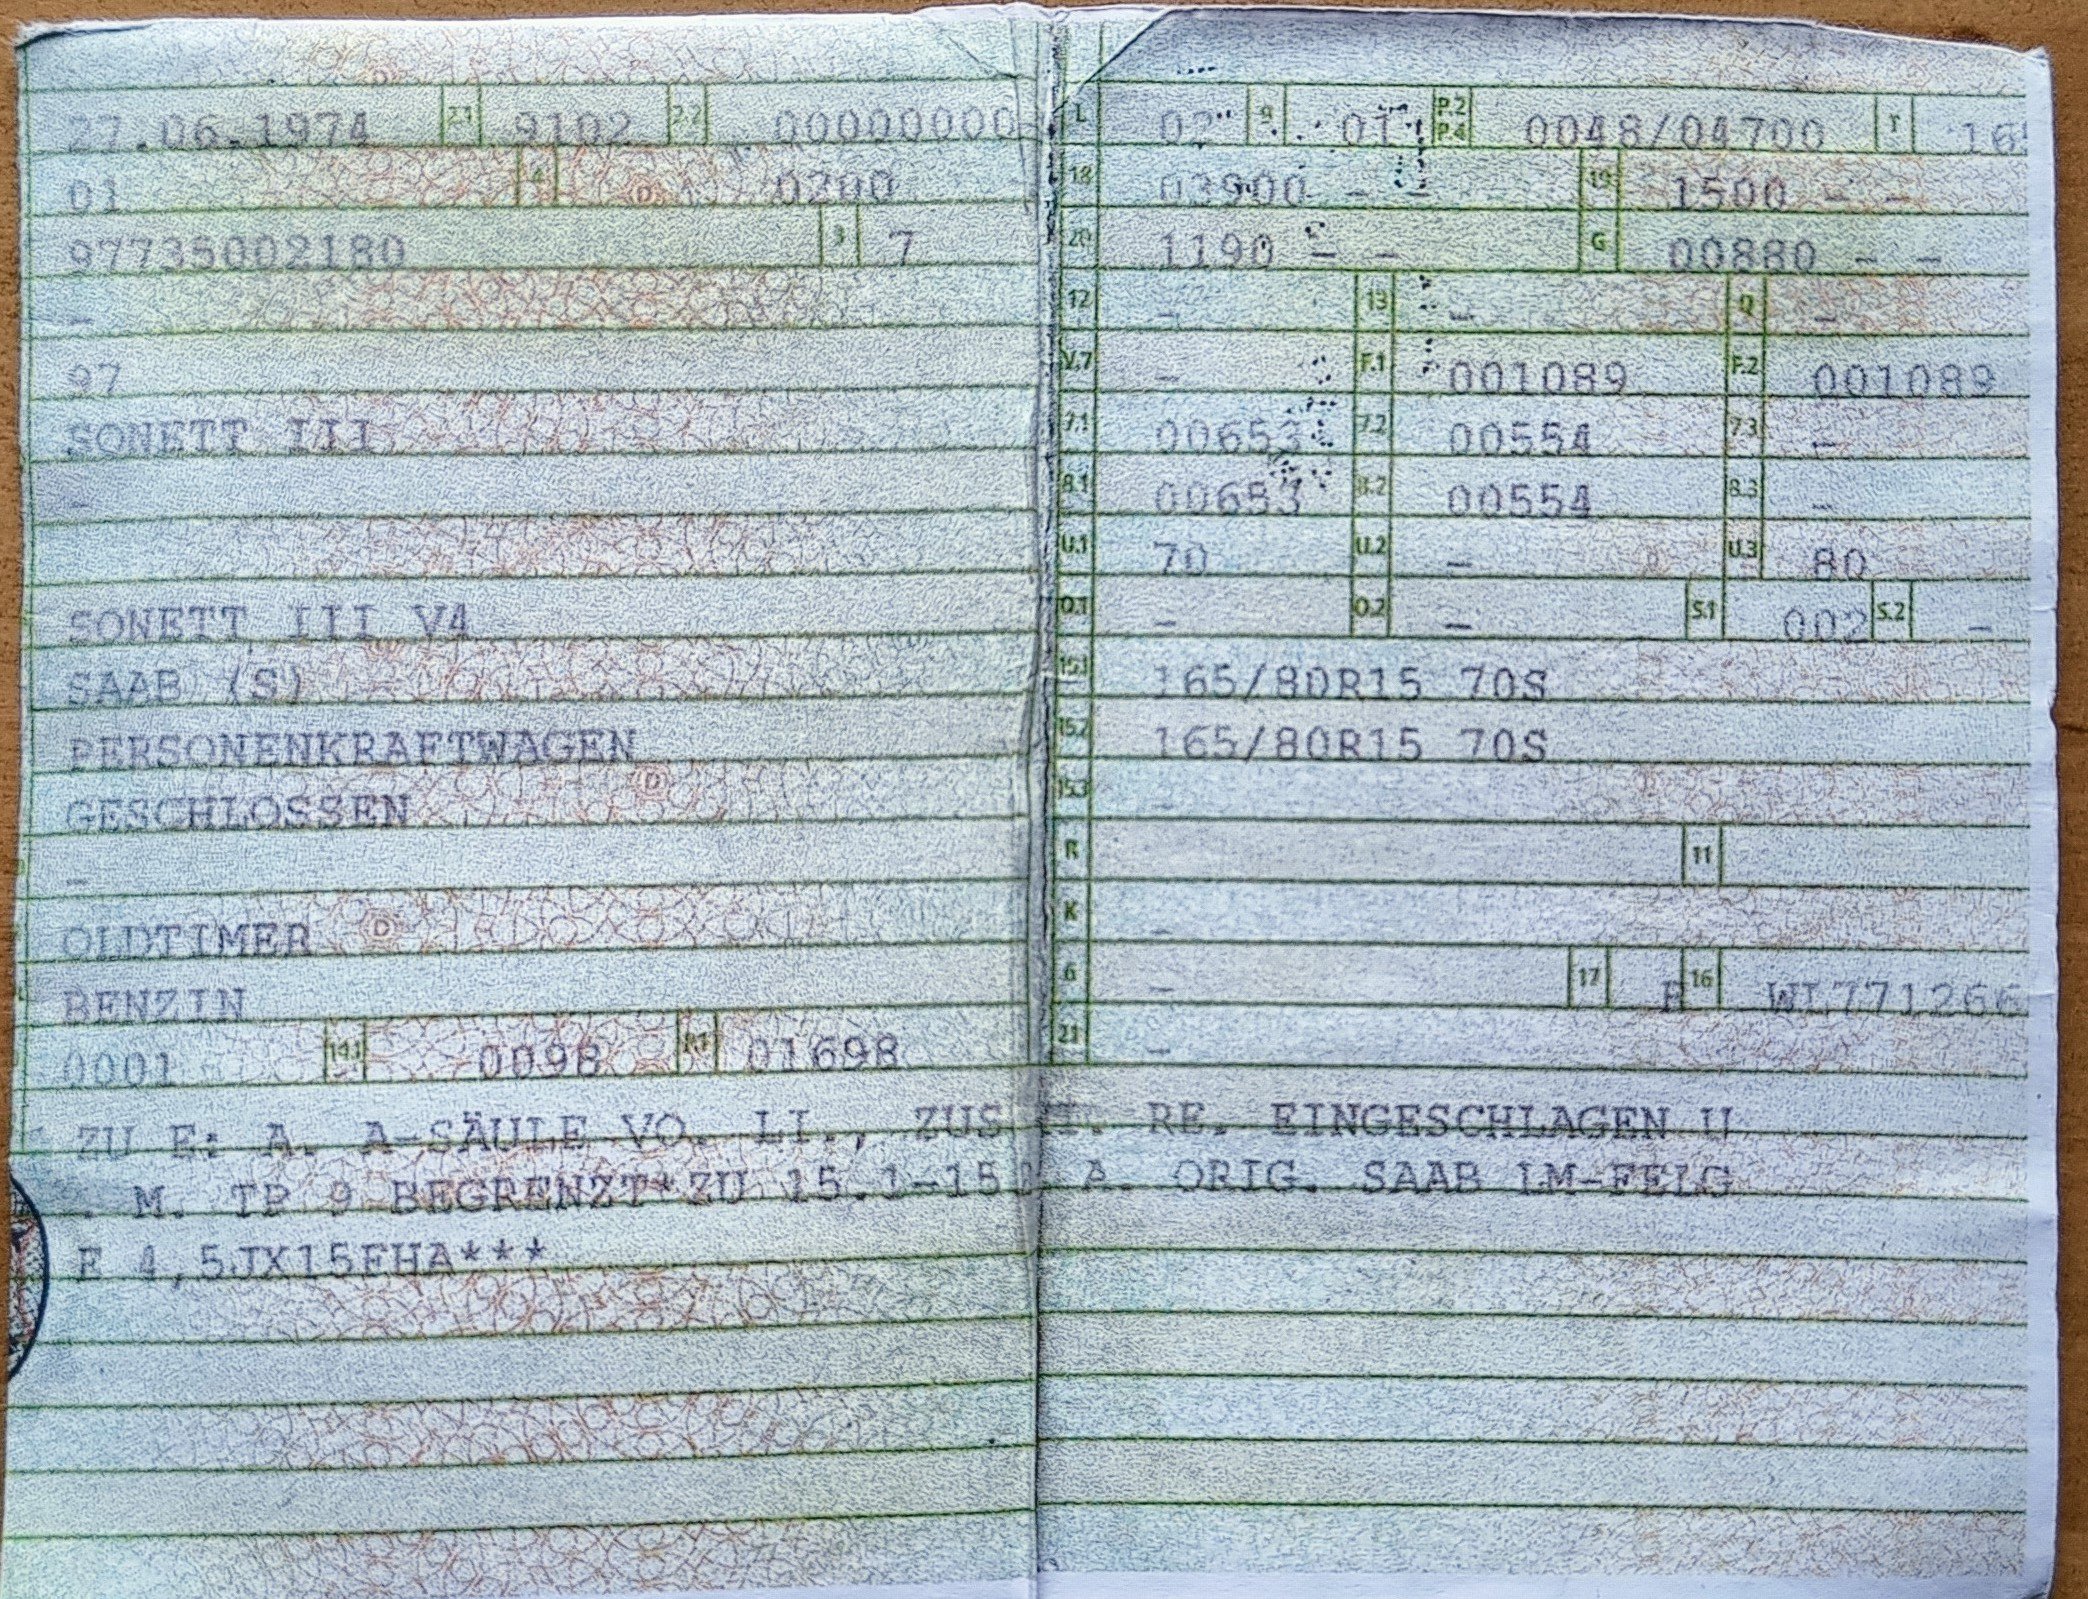 27.06.1974 2.1 9102 2.2 00000000
01 4 0200
97735002180 3 7
-
97
SONETT III
-
SONETT III V4
SAAB (S)
PERSONENKRAFTWAGEN
GESCHLOSSEN
-
OLDTIMER
BENZIN
0001 14.1 0098 P.1 01698
L 02 9 01 P.2 P.4 0048/04700 T 16
18 03900 - - 19 1500 - -
20 1190 - - G 00880 - -
12 - 13 - Q -
V.7 - F.1 001089 F.2 001089
7.1 00653 7.2 00554 7.3 -
8.1 00653 8.2 00554 8.3 -
U.1 70 U.2 - U.3 80
O.1 - O.2 - S.1 002 S.2 -
15.1 165/80R15 70S
15.2 165/80R15 70S
15.3 -
R 11
K -
6 - 17 16 WL771266
21 -
ZU E: A. A-SÄULE VO. LI., ZUS RE. EINGESCHLAGEN U
. M. TP 9 BEGRENZT*ZU 15.1-15 A. ORIG. SAAB LM-FELG
E 4,5JX15FHA***